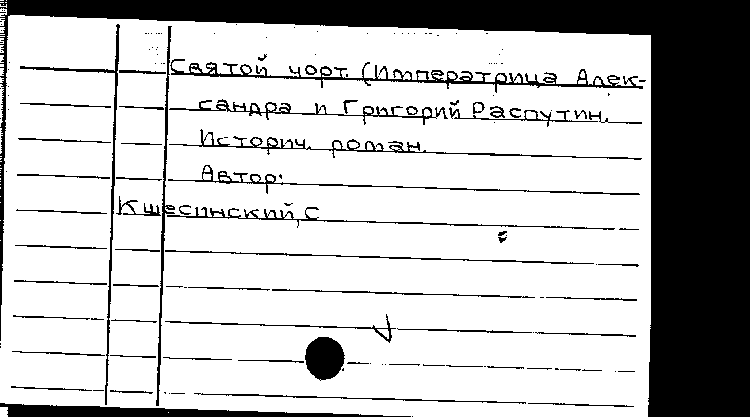 Святой чорт. (Императрица Алек-
сандра и Григорий Распутин.
Историч. роман.
Автор:
Кшесинский, С